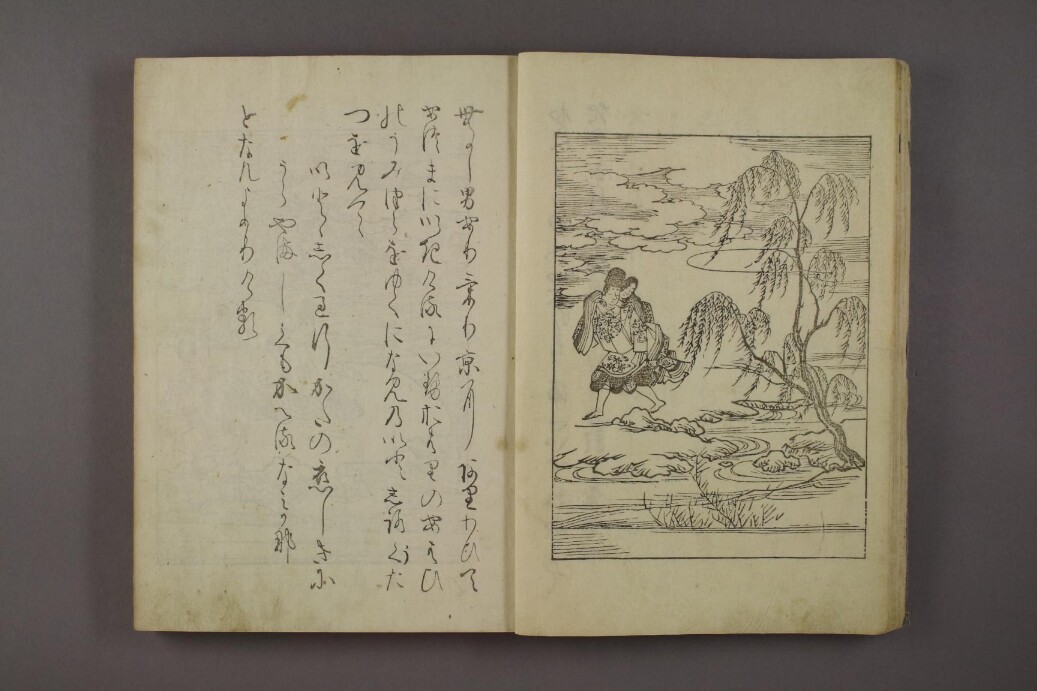 むかし男ありけり京にありわひて
あつまにいきけるにいせおはりのあはひ
のうみつらをゆくになみのいとしろくた
つを見て
いとゝしく過行かたの恋しきに
うらやましくもかへるなみかな
となんよめりける